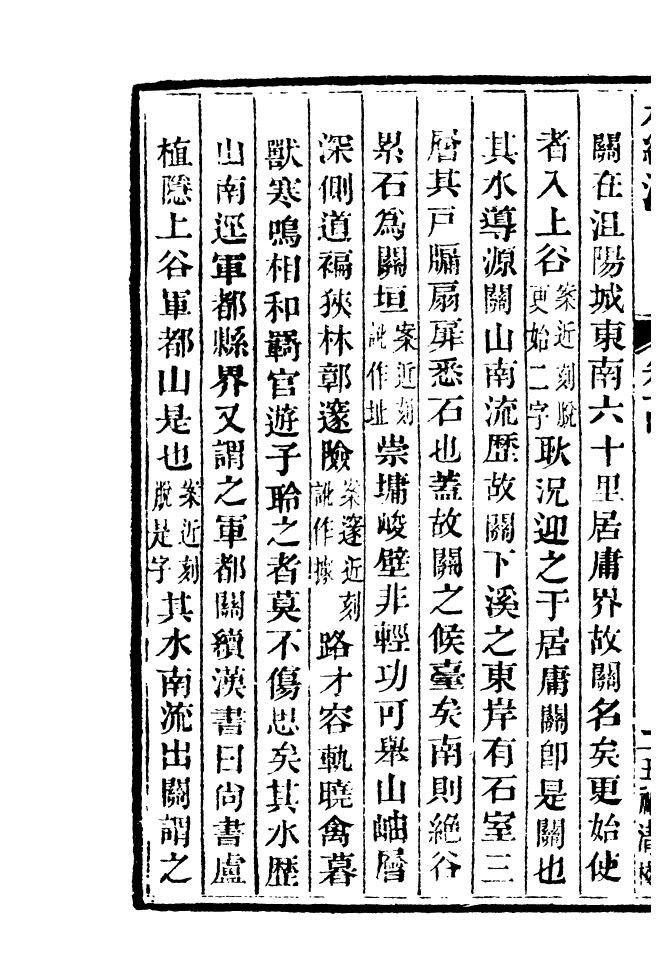 關在沮陽城東南六十里居庸界故關名矣更始使
者入上谷案近刻脫更始二字耿況迎之于居庸關卽是關也
其水導源關山南流歷故關下溪之東岸有石室三
層其戸牖扇扉悉石也蓋故關之候臺矣南則絕谷
累石爲關垣案近刻訛作址崇墉峻壁非輕功可舉山岫層
深側道褊狹林鄣邃險案邃近刻訛作據路才容軌曉禽暮
獸寒鳴相和羇官遊子聆之者莫不傷思矣其水歷
山南逕軍都縣界又謂之軍都關續漢書曰尙書盧
植隱上谷軍都山是也案近刻脫是字其水南流出關謂之